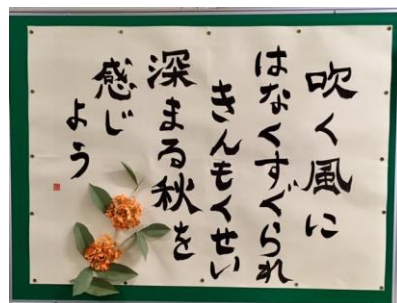 吹く風に
はなくすぐられ
きんもくせい
深まる秋を
感じ
よう